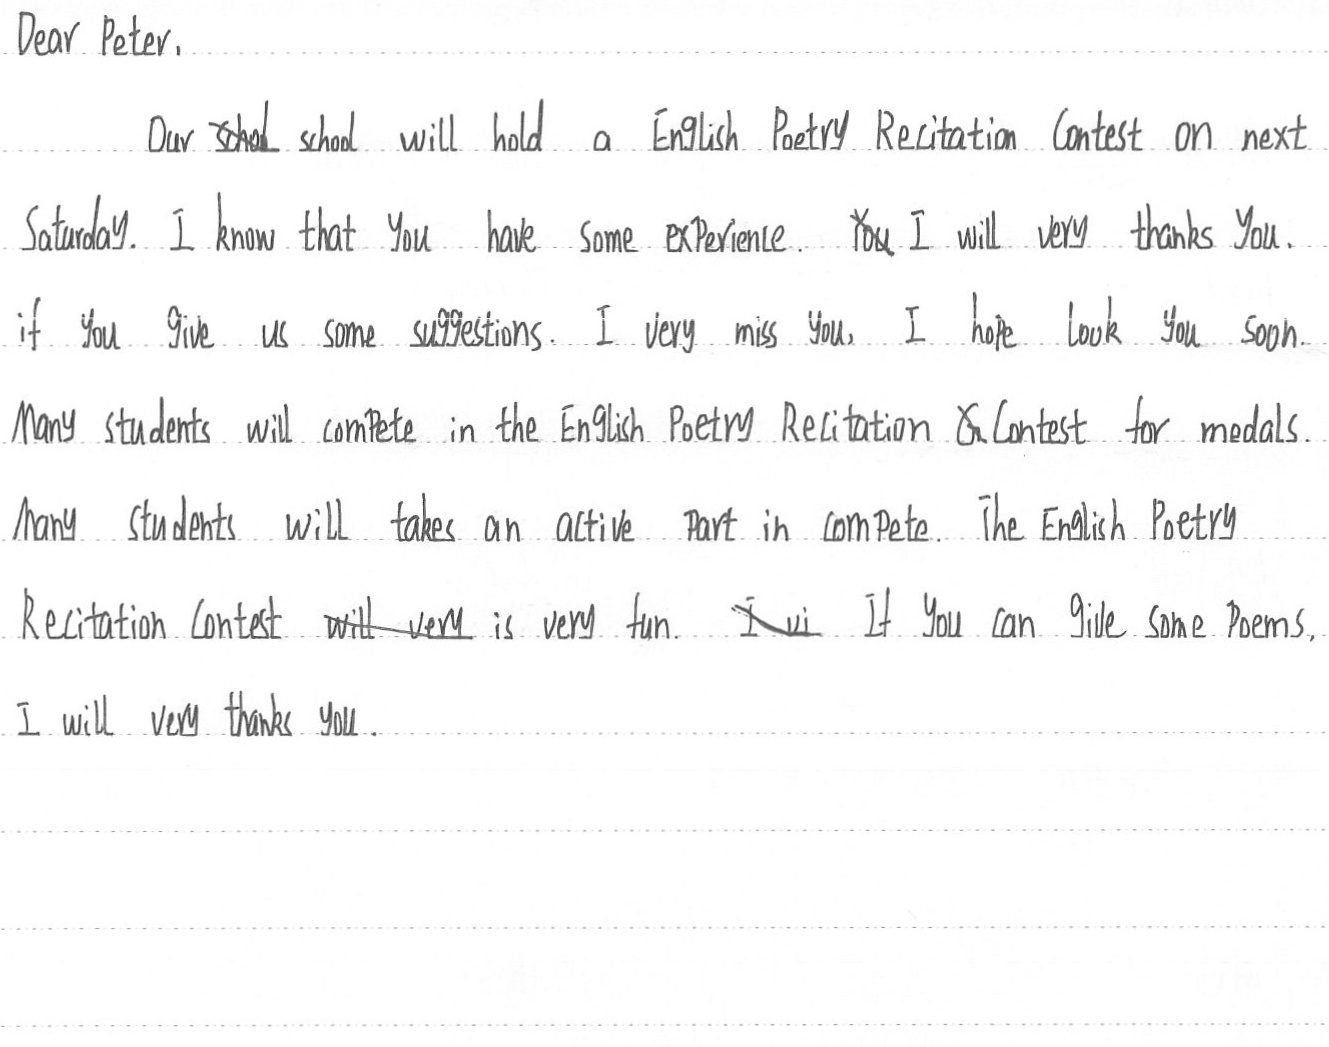 Dear Peter.
Our school will hold a English Poetry Recitation Contest on next
Saturday. I know that you have some experience. I will very thanks you.
if you give us some suggestions. I very miss you, I hope look you soon.
Many students will compete in the English Poetry Recitation Contest for medals.
Many students will takes an active part in compete. The English Poetry
Recitation Contest is very fun. If you can give some poems,
I will very thanks you.